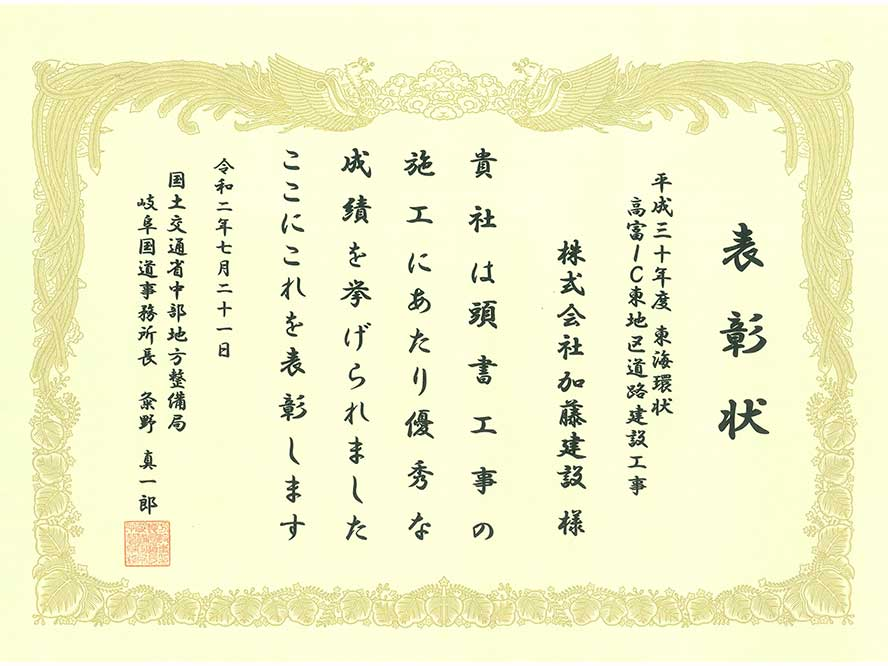 表彰状
平成三十年度 東海環状
高富IC東地区道路建設工事
株式会社加藤建設 様
貴社は頭書工事の
施工にあたり優秀な
成績を挙げられました
ここにこれを表彰します
令和二年七月二十一日
国土交通省中部地方整備局
岐阜国道事務所長 粂野 真一郎